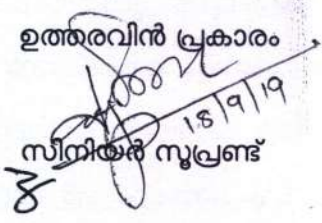 ഉത്തരവിൻ പ്രകാരം
18/9/19
സീനിയർ സൂപ്രണ്ട്